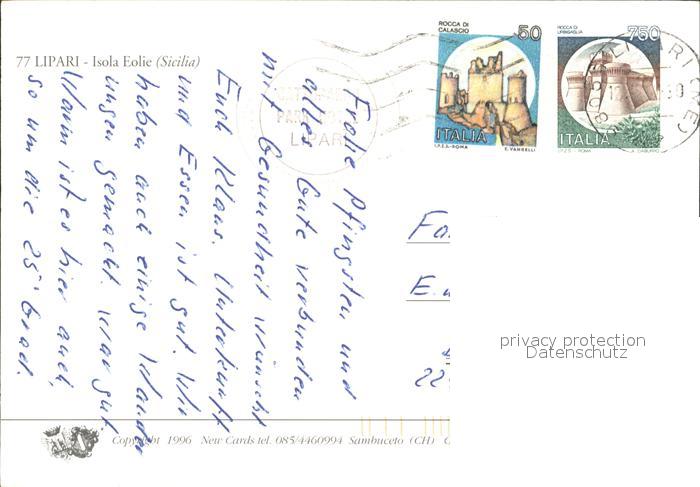 77 LIPARI - Isola Eolie (Sicilia)
ROCCA DI
CALASCIO
50
ITALIA
I.P.Z.S.-ROMA E. VANGELLI
ROCCA DI
URBISAGLIA
750
ITALIA
I.P.Z.S. - ROMA
LIPARI
Frohe Pfingsten und
alles Gute verbunden
mit Gesundheit wünscht
Euch Klaus. Unterkunft
und Essen ist gut. Wir
haben auch einige Wander
ungen gemacht. War gut.
Warm ist es hier auch,
so um die 25° Grad.
Fa
E.
22
privacy protection
Datenschutz
Copyright 1996 New Cards tel. 085/4460994 Sambuceto (CH)